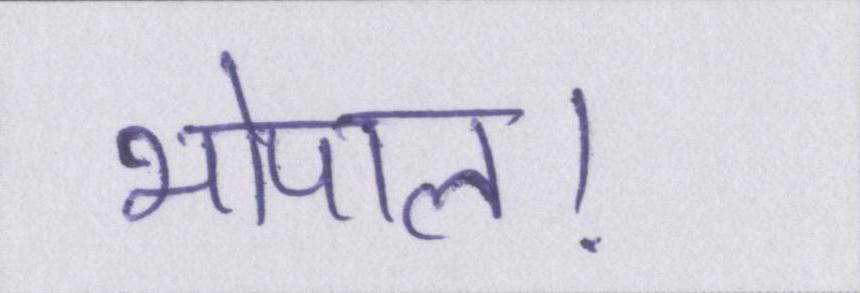 भोपाल!